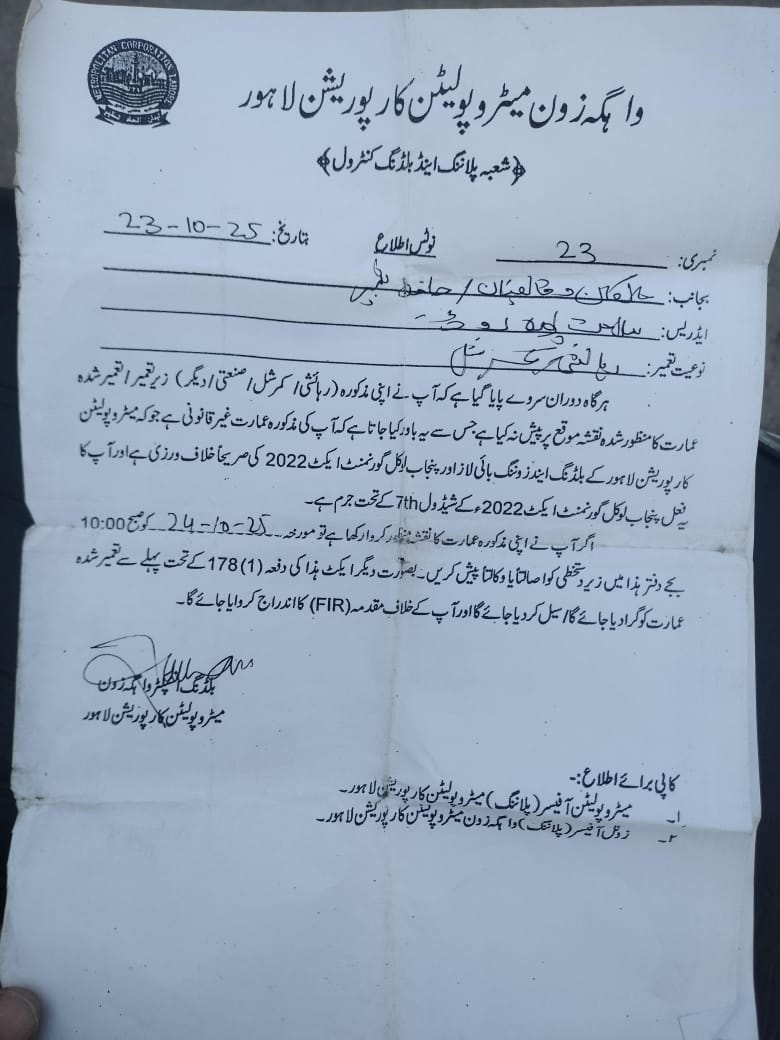 METROPOLITAN CORPORATION LAHORE
واہگہ زون میٹروپولیٹن کارپوریشن لاہور
﴿شعبہ پلاننگ اینڈ بلڈنگ کنٹرول﴾
نمبری: 23 نوٹس اطلاع بتاریخ: 23-10-25
بجانب: مالکان و قابضان / حافظ
ایڈریس: روڈ
نوعیت تعمیر: رہائشی کمرشل
ہرگاہ دوران سروے پایا گیا ہے کہ آپ نے اپنی مذکورہ (رہائشی / کمرشل / صنعتی / دیگر) زیر تعمیر / تعمیر شدہ
عمارت کا منظور شدہ نقشہ موقع پر پیش نہ کیا ہے جس سے یہ باور کیا جاتا ہے کہ آپ کی مذکورہ عمارت غیر قانونی ہے جو کہ میٹروپولیٹن
کارپوریشن لاہور کے بلڈنگ اینڈ زوننگ بائی لاز اور پنجاب لوکل گورنمنٹ ایکٹ 2022 کی صریحاً خلاف ورزی ہے اور آپ کا
یہ فعل پنجاب لوکل گورنمنٹ ایکٹ 2022ء کے شیڈول 7th کے تحت جرم ہے۔
اگر آپ نے اپنی مذکورہ عمارت کا نقشہ منظور کروا رکھا ہے تو مورخہ 24-10-25 کو صبح 10:00
بجے دفتر ہذا میں زیر دستخطی کو اصالتاً یا وکالتاً پیش کریں۔ بصورت دیگر ایکٹ ہذا کی دفعہ (1)178 کے تحت پہلے سے تعمیر شدہ
عمارت کو گرا دیا جائے گا / سیل کر دیا جائے گا اور آپ کے خلاف مقدمہ (FIR) کا اندراج کروایا جائے گا۔
بلڈنگ انسپکٹر واہگہ زون
میٹروپولیٹن کارپوریشن لاہور
کاپی برائے اطلاع:-
۱۔ میٹروپولیٹن آفیسر (پلاننگ) میٹروپولیٹن کارپوریشن لاہور۔
۲۔ زونل آفیسر (پلاننگ) واہگہ زون میٹروپولیٹن کارپوریشن لاہور۔